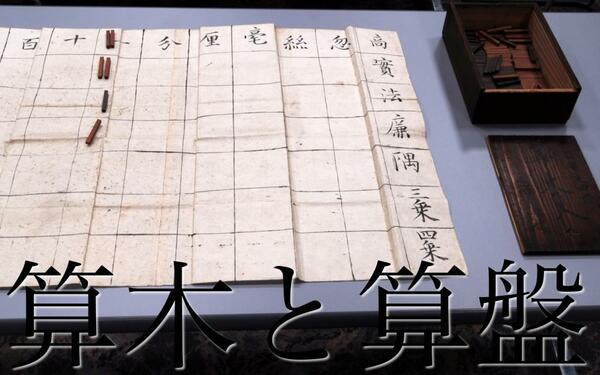 百十一分厘毫絲忽商
實
法
廉
隅
三乗
四乗
算木と算盤